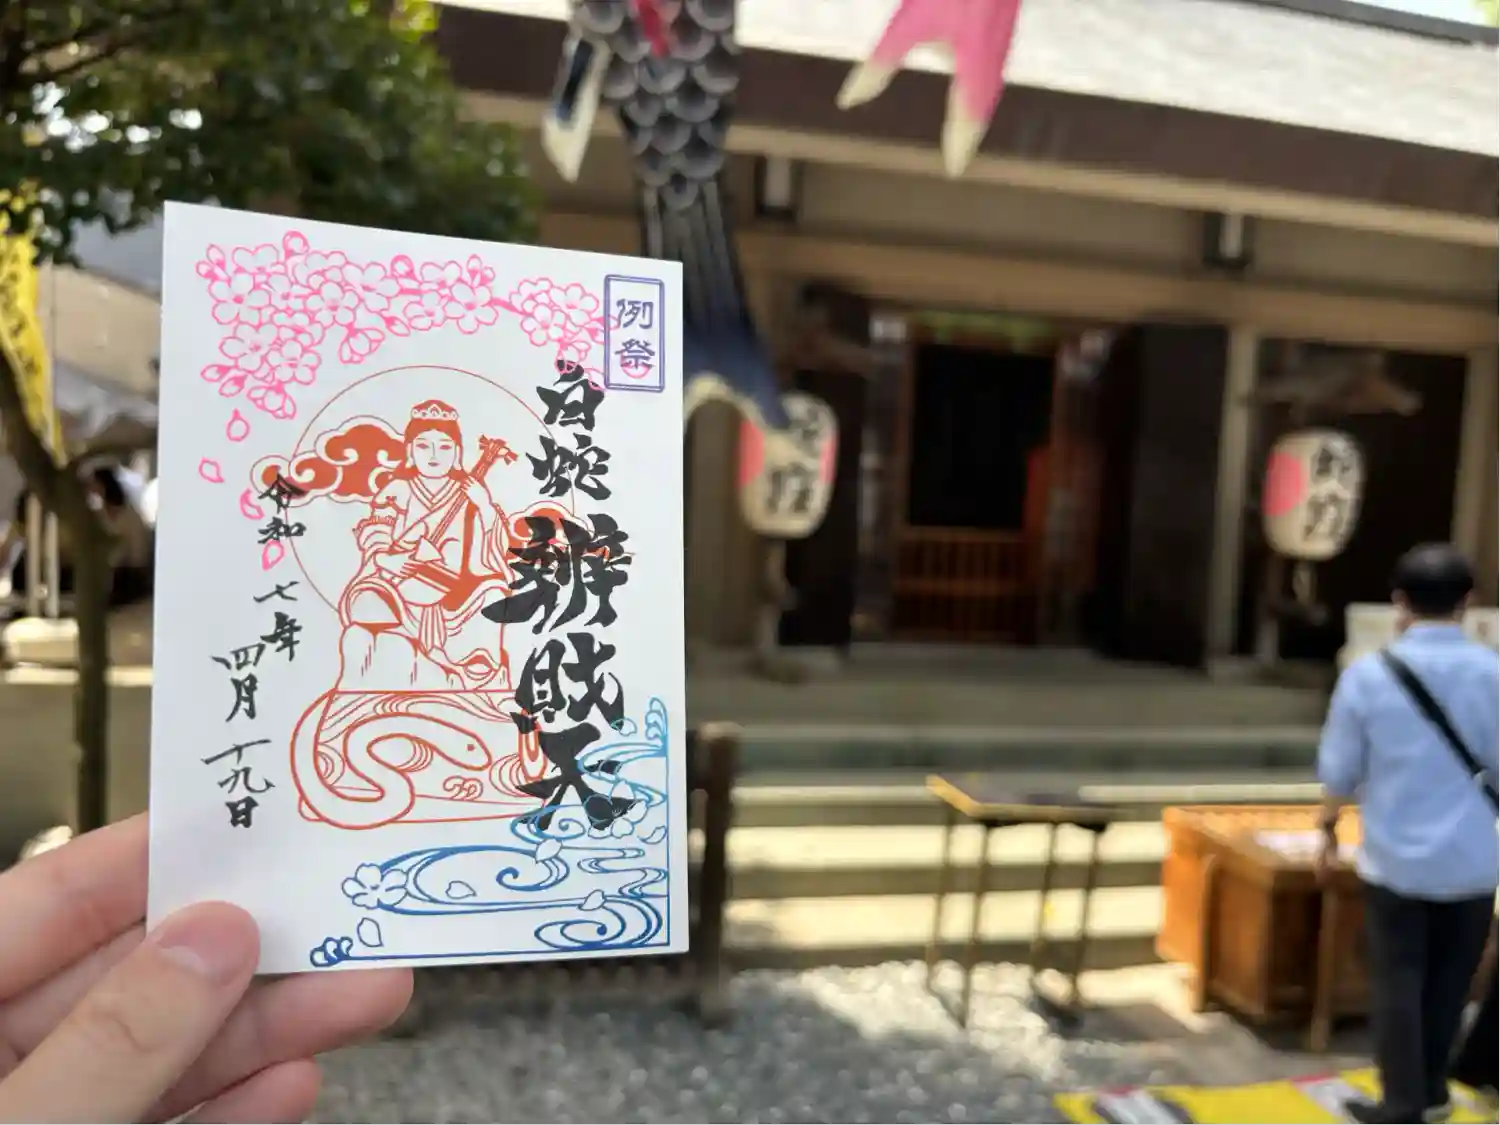 例祭
白蛇辨財天
令和七年四月十九日
蛇窪
蛇窪